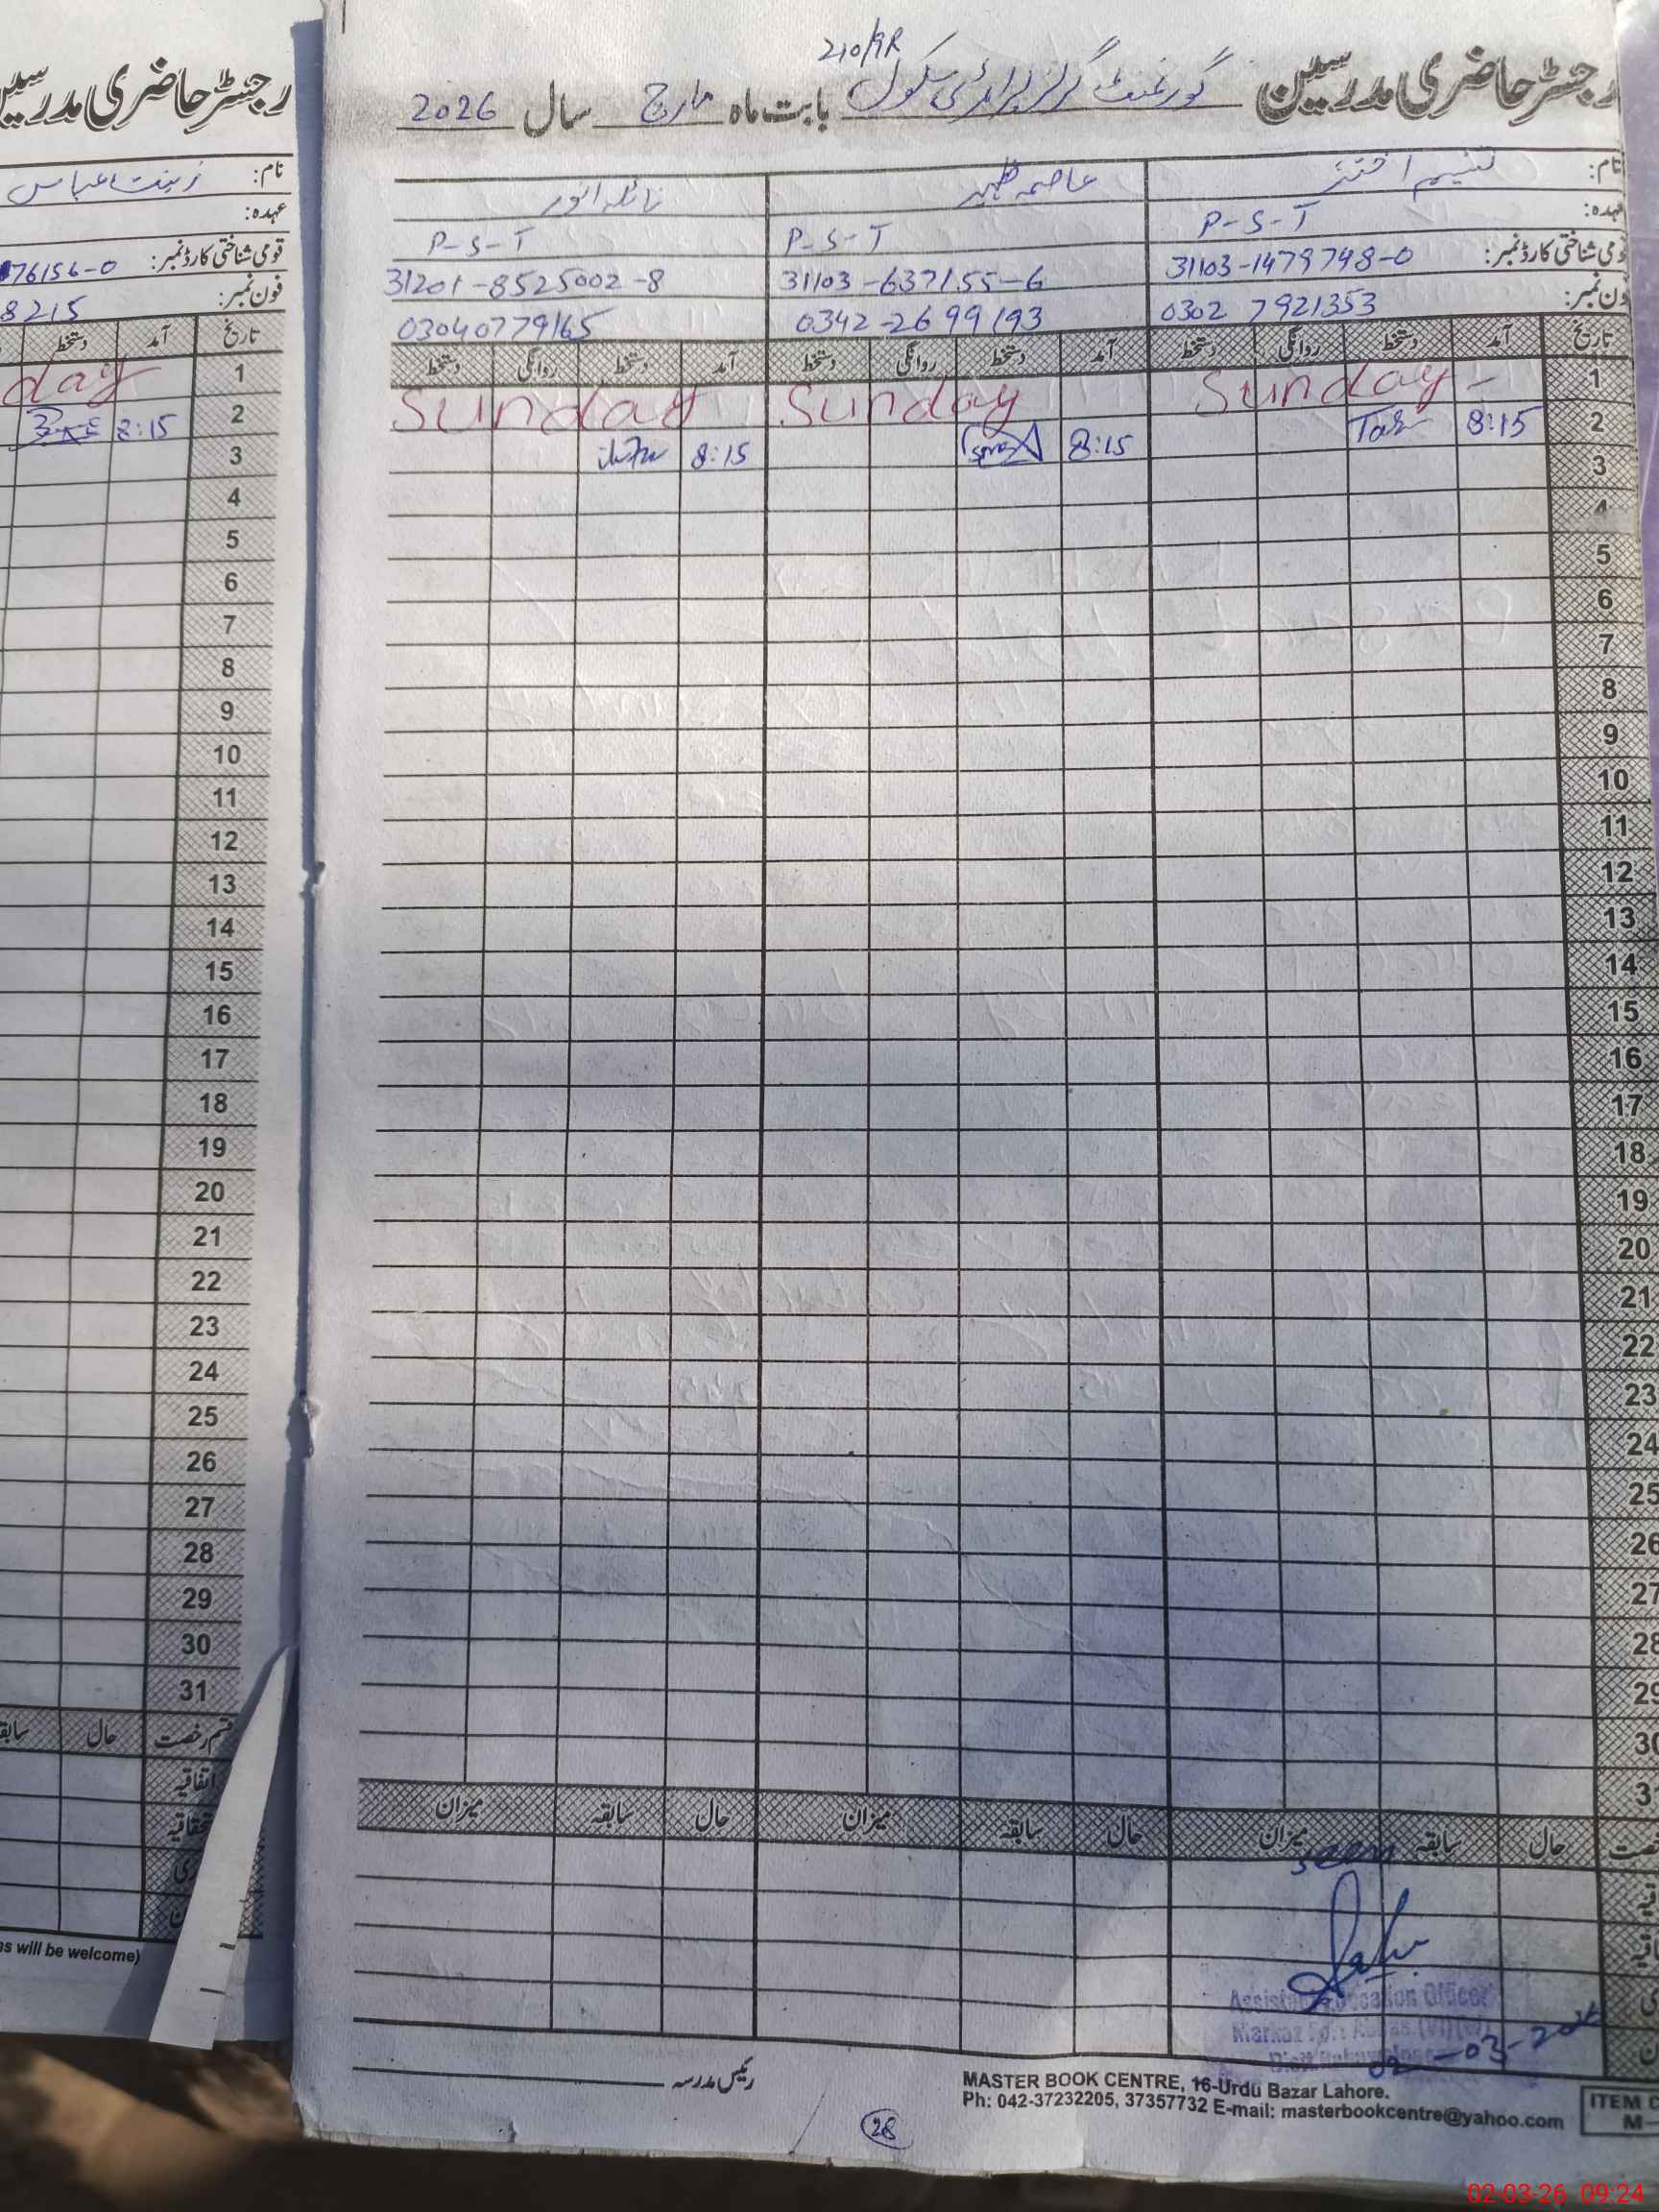 رجسٹر حاضری مدرسین
نام: زینت عباس
عہدہ:
قومی شناختی کارڈ نمبر: 76156-0
فون نمبر: 8215
تاریخ آمد دستخط
1 day
2 8:15
3
4
5
6
7
8
9
10
11
12
13
14
15
16
17
18
19
20
21
22
23
24
25
26
27
28
29
30
31
قسم رخصت حال
اتفاقیہ
s will be welcome)
210/9R
رجسٹر حاضری مدرسین گورنمنٹ گرلز پرائمری سکول بابت ماہ مارچ سال 2026
نام: تسنیم اختر عاصمہ ظہیر نائلہ انور
عہدہ: P-S-T P-S-T P-S-T
قومی شناختی کارڈ نمبر: 31103-1479748-0 31103-637155-6 31201-8525002-8
فون نمبر: 0302 7921353 0342-2699193 03040779165
تاریخ آمد دستخط روانگی دستخط آمد دستخط روانگی دستخط آمد دستخط روانگی دستخط
1 Sunday- Sunday Sunday
2 8:15 8:15 8:15
3
4
5
6
7
8
9
10
11
12
13
14
15
16
17
18
19
20
21
22
23
24
25
26
27
28
29
30
3
حال سابقہ میزان حال سابقہ میزان حال سابقہ میزان
seen
Assistant Education Officer
02-03-2026
رئیس مدرسہ
MASTER BOOK CENTRE, 16-Urdu Bazar Lahore.
Ph: 042-37232205, 37357732 E-mail: masterbookcentre@yahoo.com
ITEM
M-
28
02-03-26 09:24